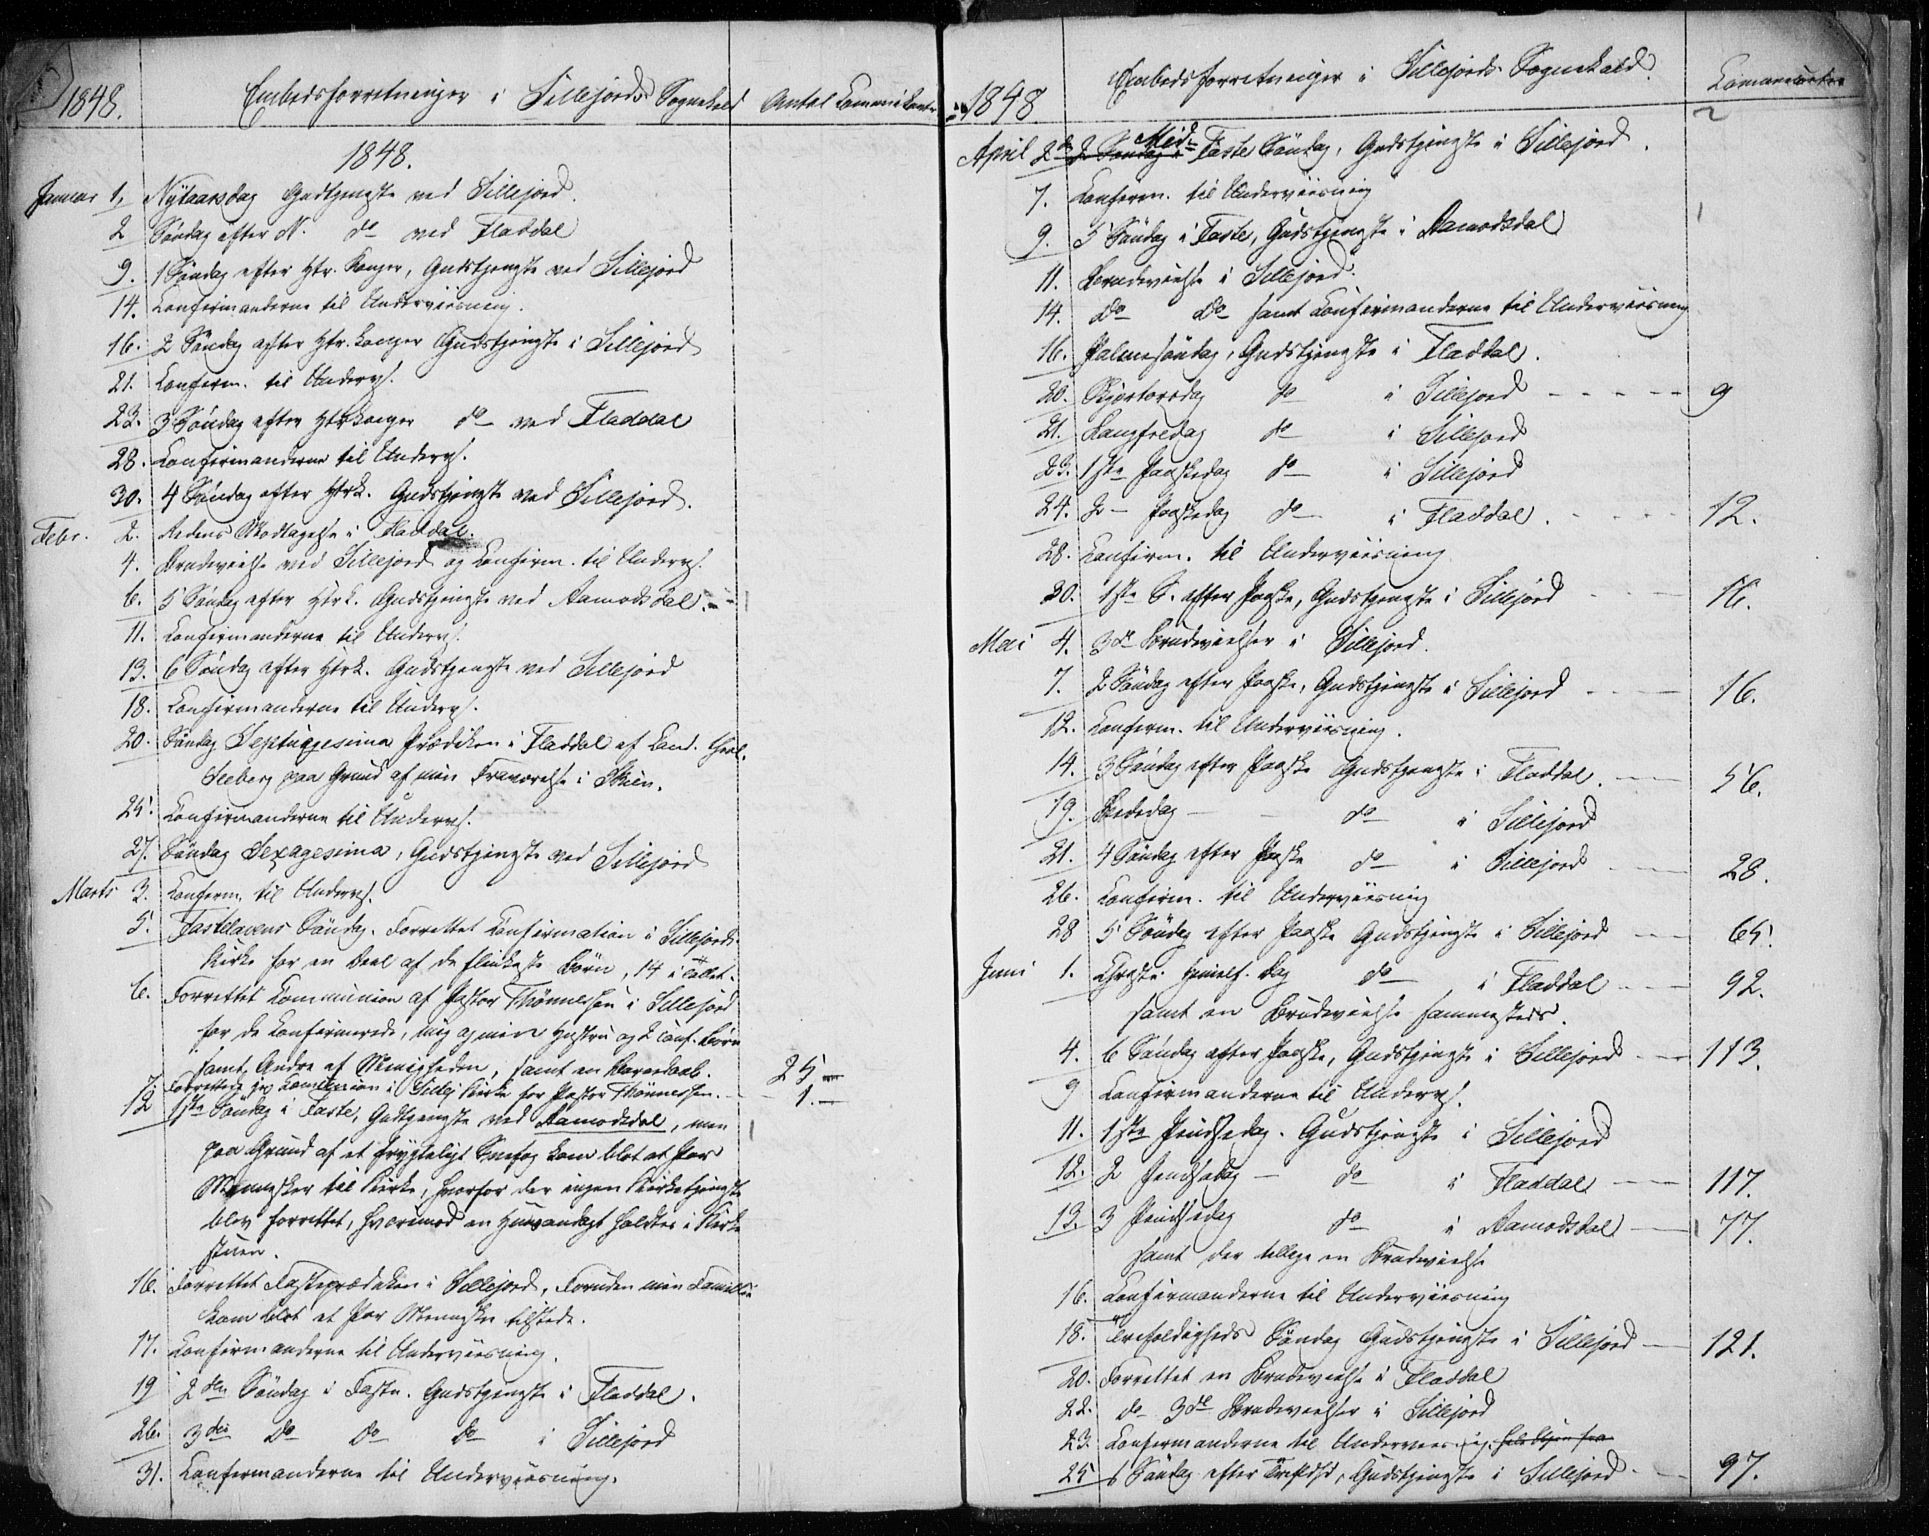 1848. Embedsforretninger i Sillejords Sognekald Antal Communikanter
1848.
Januar 1. Nytaarsdag Gudstjeneste ved Sillejord.
2 Søndag efter N. do ved Fladdal
9. 1 Søndag efter Htr. Konger, Gudstjeneste ved Sillejord
14. Confirmanderne til Underviisning.
16. 2 Søndag efter Htr. Konger Gudstjeneste i Sillejord
21. Confirm. til Underv.
23. 3 Søndag efter Htrkonger do ved Fladdal
28. Confirmanderne til Underv.
30. 4 Søndag efter Htrk. Gudstjeneste ved Sillejord.
Febr. 2. Modtagelse i Fladdal.
4. Brudevielse ved Sillejord og Confirm. til Underv.
6. 5 Søndag efter Htrk. Gudstjeneste ved Aamodsdal.
11. Confirmanderne til Underv.
13. 6 Søndag efter Htrk. Gudstjeneste ved Sillejord
18. Confirmanderne til Underv.
20. Søndag Septuagesima Prædiken i Fladdal af Cand. theol.
Seeberg paa Grund af min Fraværelse i Skien.
25. Confirmanderne til Underv.
27. Søndag Sexagesima, Gudstjeneste ved Sillejord
Marts 3. Confirm. til Underv.
5. Fastelavens Søndag. Forrettet Confirmation i Sillejords
Kirke for en Deel af de flinkeste Børn, 14 i Tallet.
6. Forrettet Communion af Pastor Thönnesen i Sillejord
for de Confirmerede, mig og min Hustru og 2 Conf. Børn
samt Andre af Menigheden, samt en Barnedaab. 25
7. Forrettede jeg Communion i Sillej. Kirke for Pastor Thönnessen. 1.
12 1ste Søndag i Faste, Gudstjeneste ved Aamodsdal, men
paa Grund af et frygteligt Snefog kom blot et Par
Mennesker til Kirke, hvorfor der ingen Kirketjeneste
blev forrettet, hvorimod en Huusandagt holdtes i Kirke
stuen.
16. Forrettet Fasteprædiken i Sillejord, Foruden min Familie
kom blot et Par Mennesker tilstede.
17. Confirmanderne til Underviisning.
19 2den Søndag i Faste. Gudstjeneste i Fladdal.
26. 3die Do Do Do i Sillejord
31. Confirmanderne til Underviisning.
1848. Embedsforretninger i Sillejords Sognekald. Communicanter
April 2den 2 Søndag i Mid-Faste Søndag, Gudstjeneste i Sillejord.
7. Confirm. til Underviisning
9. 5 Søndag i Faste, Gudstjeneste i Aamodsdal
11. Brudevielse i Sillejord.
14. Do Do samt Confirmanderne til Underviisning
16. Palmesøndag, Gudstjeneste i Fladdal.
20. Skjertorsdag do i Sillejord 9
21. Langfredag do i Sillejord
23. 1ste Paaskedag do i Sillejord
24. 2 Paaskedag do i Fladdal. 12.
28. Confirm. til Underviisning
30. 1ste S. efter Paaske, Gudstjeneste i Sillejord 16.
Mai 4. 3de Brudevielser i Sillejord.
7. 2 Søndag efter Paaske, Gudstjeneste i Sillejord 16.
12. Confirm. til Underviisning.
14. 3 Søndag efter Paaske Gudstjeneste i Fladdal. 56.
19. Bededag do i Sillejord
21. 4 Søndag efter Paaske do i Sillejord 28.
26. Confirm. til Underviisning
28 5 Søndag efter Paaske Gudstjeneste i Sillejord 65.
Juni 1. Christi Himmelf. Dag do i Fladdal 92.
samt en Brudevielse sammesteds.
4. 6 Søndag efter Paaske, Gudstjeneste i Sillejord 113.
9 Confirmanderne til Underv.
11. 1ste Pindsedag. Gudstjeneste i Sillejord
12. 2 Pindsedag do i Fladdal 117.
13. 3 Pindsedag do i Aamodsdal 77.
samt der tillige en Brudevielse
16. Confirmanderne til Underviisning
18. Trefoldigheds Søndag Gudstjeneste i Sillejord 121.
20. Forrettet en Brudevielse i Fladdal
22. do 3de Brudevielser i Sillejord
23. Confirmanderne til Underviisning.
25 1 Søndag efter Trefdhd, Gudstjeneste i Sillejord 97.